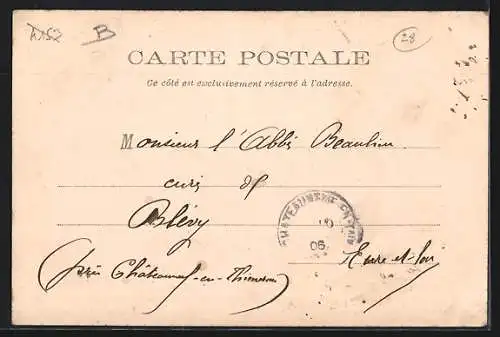 A152 B 28
CARTE POSTALE
Ce côté est exclusivement réservé à l'adresse.
Monsieur l'Abbé Beaulieu
curé de
Blévy
CHATEAUNEUF-EN-THIM
06
Eure-et-Loir
(près Châteauneuf-en-Thimerais